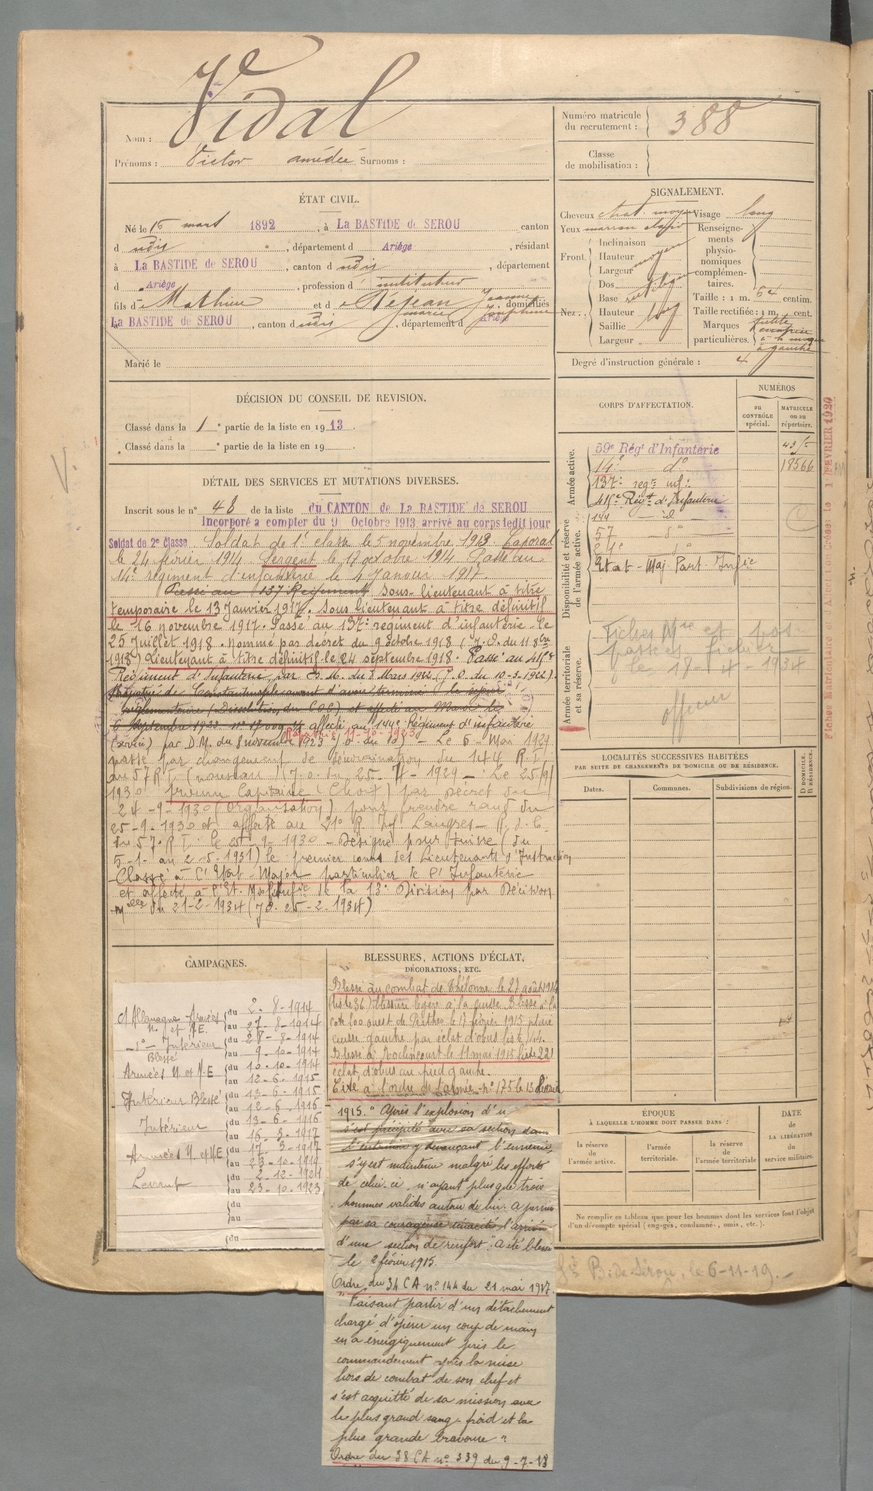 Nom : Vidal
Prénoms : Victor amédée Surnoms :
Numéro matricule du recrutement : 388
Classe de mobilisation :
ÉTAT CIVIL.
Né le 16 mars 1892, à La BASTIDE de SEROU canton
d udis, département d Ariège, résidant
à La BASTIDE de SEROU, canton d udis, département
d Ariège, profession d' instituteur
fils d e Mathieu et d e Rejean Jeanne
marie Josephine domiciliés
La BASTIDE de SEROU, canton d udis, département d Ariège
Marié le
SIGNALEMENT.
Cheveux chat. moyen Visage long
Yeux marron
Front. Inclinaison
Hauteur moyen
Largeur
Nez. Dos
Base
Hauteur long
Saillie
Largeur
Renseignements physionomiques complémentaires.
Taille : 1 m. 64 centim.
Taille rectifiée : 1 m. cent.
Marques particulières. petite
à gauche
Degré d'instruction générale : 4
DÉCISION DU CONSEIL DE REVISION.
Classé dans la 1e partie de la liste en 1913.
Classé dans la e partie de la liste en 19
DÉTAIL DES SERVICES ET MUTATIONS DIVERSES.
Inscrit sous le n° 48 de la liste du CANTON de La BASTIDE de SEROU
Incorporé à compter du 9 Octobre 1913 arrivé au corps ledit jour
Soldat de 2e Classe Soldat de 1e classe le 5 novembre 1913 Caporal
le 24 février 1914 Sergent le 17 octobre 1914 Passé au
14e régiment d'infanterie le 4 Janvier 1917.
Passé au (137 Régiment) Sous-lieutenant à titre
temporaire le 13 Janvier 1917. Sous lieutenant à titre définitif
le 16 novembre 1917. Passé au 137e régiment d'infanterie le
25 Juillet 1918. Nommé par décret du 9 octobre 1918 (J.O. du 11 8bre
1918) Lieutenant à titre définitif le 24 septembre 1918. Passé au 415e
Régiment d'Infanterie, par D.M. du 3 Mars 1922 (J.O. du 10-3-1922).
6 septembre 1923 affecté au 144e Régiment d'infanterie
Rapatrié 11-10-1923
(servir) par D.M. du 8 novembre 1923 J.O. du 13) - Le 6 Mai 1929
passé par changement de dénomination du 144 R.I.
au 57 R.I. (nouveau) J.O. du 25-4-1929 - Le 25/9/
1930 promu Capitaine (Choix) par décret du
24-9-1930 (Organisation) pour prendre rang du
25-9-1930 et affecté au 21e R.I. Langres - R.d.C.
du 57e R.I. le 25-9-1930 - Désigné pour suivre (du
5-1- au 2-5-1931) le premier cours des Lieutenants d'Instruction
Classé à l'Etat-Major particulier de l'Infanterie
et affecté à l'Et. M. de la 13e Division par Décision
Melle du 21-2-1934 (J.O. 25-2-1934)
CORPS D'AFFECTATION.
NUMÉROS
au CONTRÔLE spécial.
MATRICULE ou au répertoire.
Armée active.
59e Rég' d'Infanterie
14e do 18566
137e regt inf.
415e Regt d'Infanterie
Disponibilité et réserve de l'armée active.
144 do
57 do
21e do
Etat-Maj. Part. Infie
Armée territoriale et sa réserve.
Fiches Mle et pos
passées fichier
le 18-4-1934
officier
Fiches matricules 1 FEVRIER 1920
LOCALITÉS SUCCESSIVES HABITÉES
PAR SUITE DE CHANGEMENTS DE DOMICILE OU DE RÉSIDENCE.
Dates.
Communes.
Subdivisions de région.
D DOMICILE. R RÉSIDENCE.
CAMPAGNES.
Allemagne Armées du 2-8-1914
N et NE au 27-8-1914
Intérieur du 28-8-1914
Blessé au 9-10-1914
Armées N et NE du 10-10-1914
au 12-6-1915
Intérieur Blessé du 13-6-1915
au 12-6-1916
Intérieur du 13-6-1916
au 16-3-1917
Armées N et NE du 17-3-1917
au 23-10-1919
Levant du 2-12-1921
au 23-10-1923
du
au
du
BLESSURES, ACTIONS D'ÉCLAT,
DÉCORATIONS, ETC.
Blessé au combat de Thélonne le 27 août 1914
blessure légère à la cuisse. Blessé à la
cote 200 ouest de Perthes le 17 février 1915 plaie
cuisse gauche par éclat d'obus
Blessé à Roclincourt le 11 mai 1915
éclat d'obus au pied gauche.
Cité à l'ordre de l'armée n° 175 le 15
1915. " Après l'explosion d'
s'est précipité avec sa section dans
l'entonnoir y devançant l'ennemi,
s'y est maintenu malgré les efforts
de celui-ci, n'ayant plus que trois
hommes valides autour de lui. a permis
par sa courageuse
d'une section de renfort". a été blessé
le 2 février 1915.
Ordre du 34 CA n° 144 du 21 mai 1917
"Faisant partir d'un détachement
chargé d'opérer un coup de main
en a énergiquement pris le
commandement après la mise
hors de combat de son chef et
s'est acquitté de sa mission avec
le plus grand sang-froid et la
plus grande bravoure"
Ordre du 38 CA n° 339 du 9-7-18
ÉPOQUE
À LAQUELLE L'HOMME DOIT PASSER DANS :
la réserve de l'armée active.
l'armée territoriale.
la réserve de l'armée territoriale
DATE de LA LIBÉRATION du service militaire.
Ne remplir ce tableau que pour les hommes dont les services font l'objet
d'un décompte spécial (engagés, condamnés, omis, etc.).
B. de Sérou, le 6-11-19.